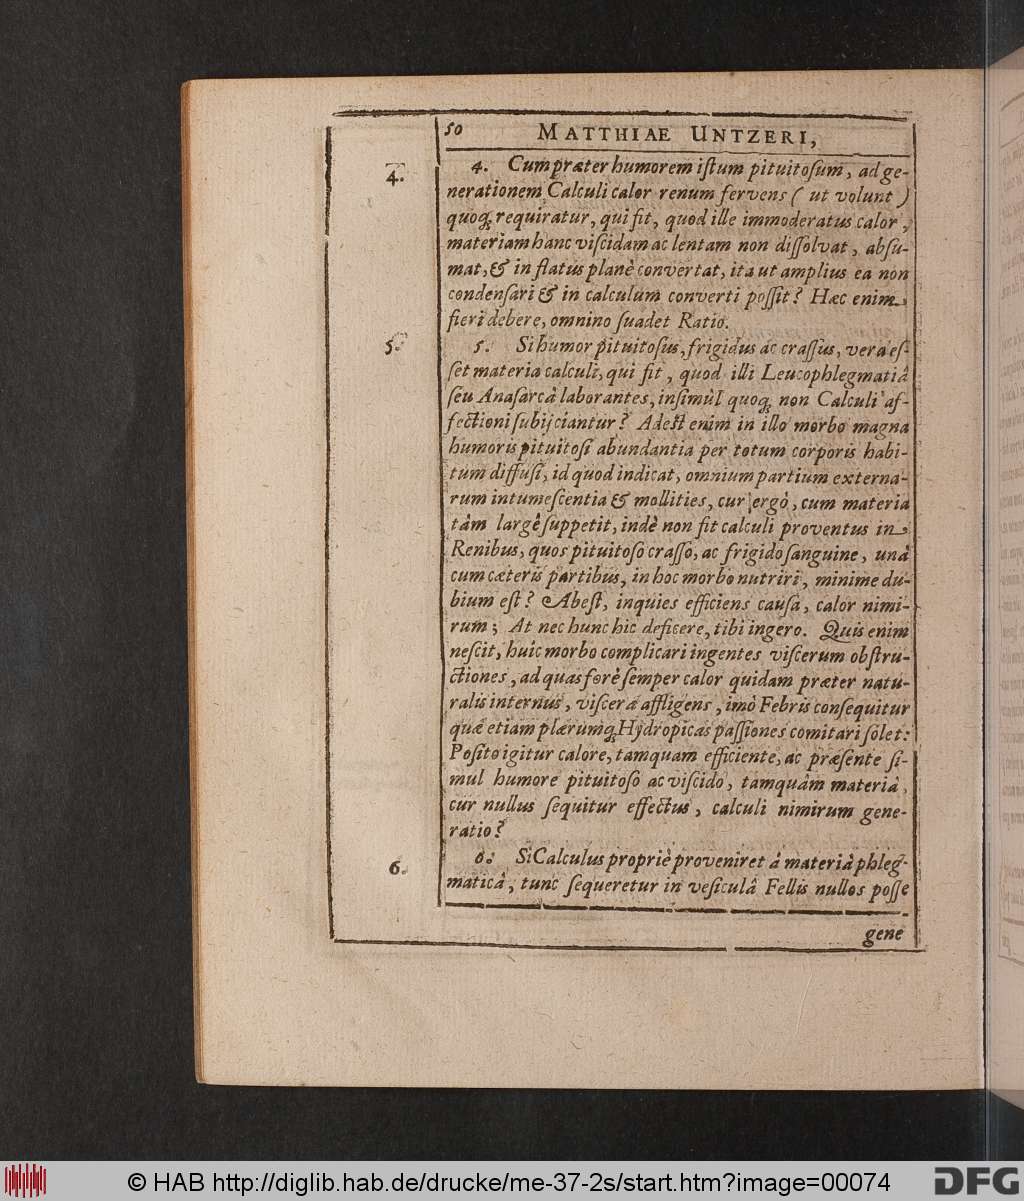 50 MATTHIAE UNTZERI,
4. 4. Cum præter humorem iſtum pituitoſum, ad ge-
nerationem Calculi calor renum fervens ( ut volunt )
quoq; requiratur, qui fit, quod ille immoderatus calor,
materiam hanc viſcidam ac lentam non diſſolvat, abſu-
mat, & in flatus planè convertat, ita ut amplius ea non
condenſari & in calculum converti poſſit? Hæc enim
fieri debere, omnino ſuadet Ratio.
5. 5. Si humor pituitoſus, frigidus ac craſſus, vera eſ-
ſet materia calculi, qui fit, quod illi Leucophlegmatiâ
ſeu Anaſarcâ laborantes, inſimul quoq; non Calculi af-
fectioni ſubijciantur? Adest enim in illo morbo magna
humoris pituitoſi abundantia per totum corporis habi-
tum diffuſi, id quod indicat, omnium partium externa-
rum intumeſcentia & mollities, cur ergò, cum materia
tàm largè ſuppetit, indè non fit calculi proventus in
Renibus, quos pituitoſo craſſo, ac frigido ſanguine, unà
cum cæteris partibus, in hoc morbo nutriri, minime du-
bium eſt? Abeſt, inquies efficiens cauſa, calor nimi-
rum; At nec hunc hic deficere, tibi ingero. Quis enim
neſcit, huic morbo complicari ingentes viſcerum obſtru-
ctiones, ad quas ferè ſemper calor quidam præter natu-
ralis internus, viſcera affligens, imò Febris conſequitur
quæ etiam plærumq; Hydropicas paſſiones comitari ſolet:
Poſito igitur calore, tamquam efficiente, ac præſente ſi-
mul humore pituitoſo ac viſcido, tamquàm materiâ,
cur nullus ſequitur effectus, calculi nimirum gene-
ratio?
6. 6. Si Calculus propriè proveniret à materià phleg-
maticâ, tunc ſequeretur in veſiculâ Fellis nullos poſſe
gene
© HAB http://diglib.hab.de/drucke/me-37-2s/start.htm?image=00074
DFG